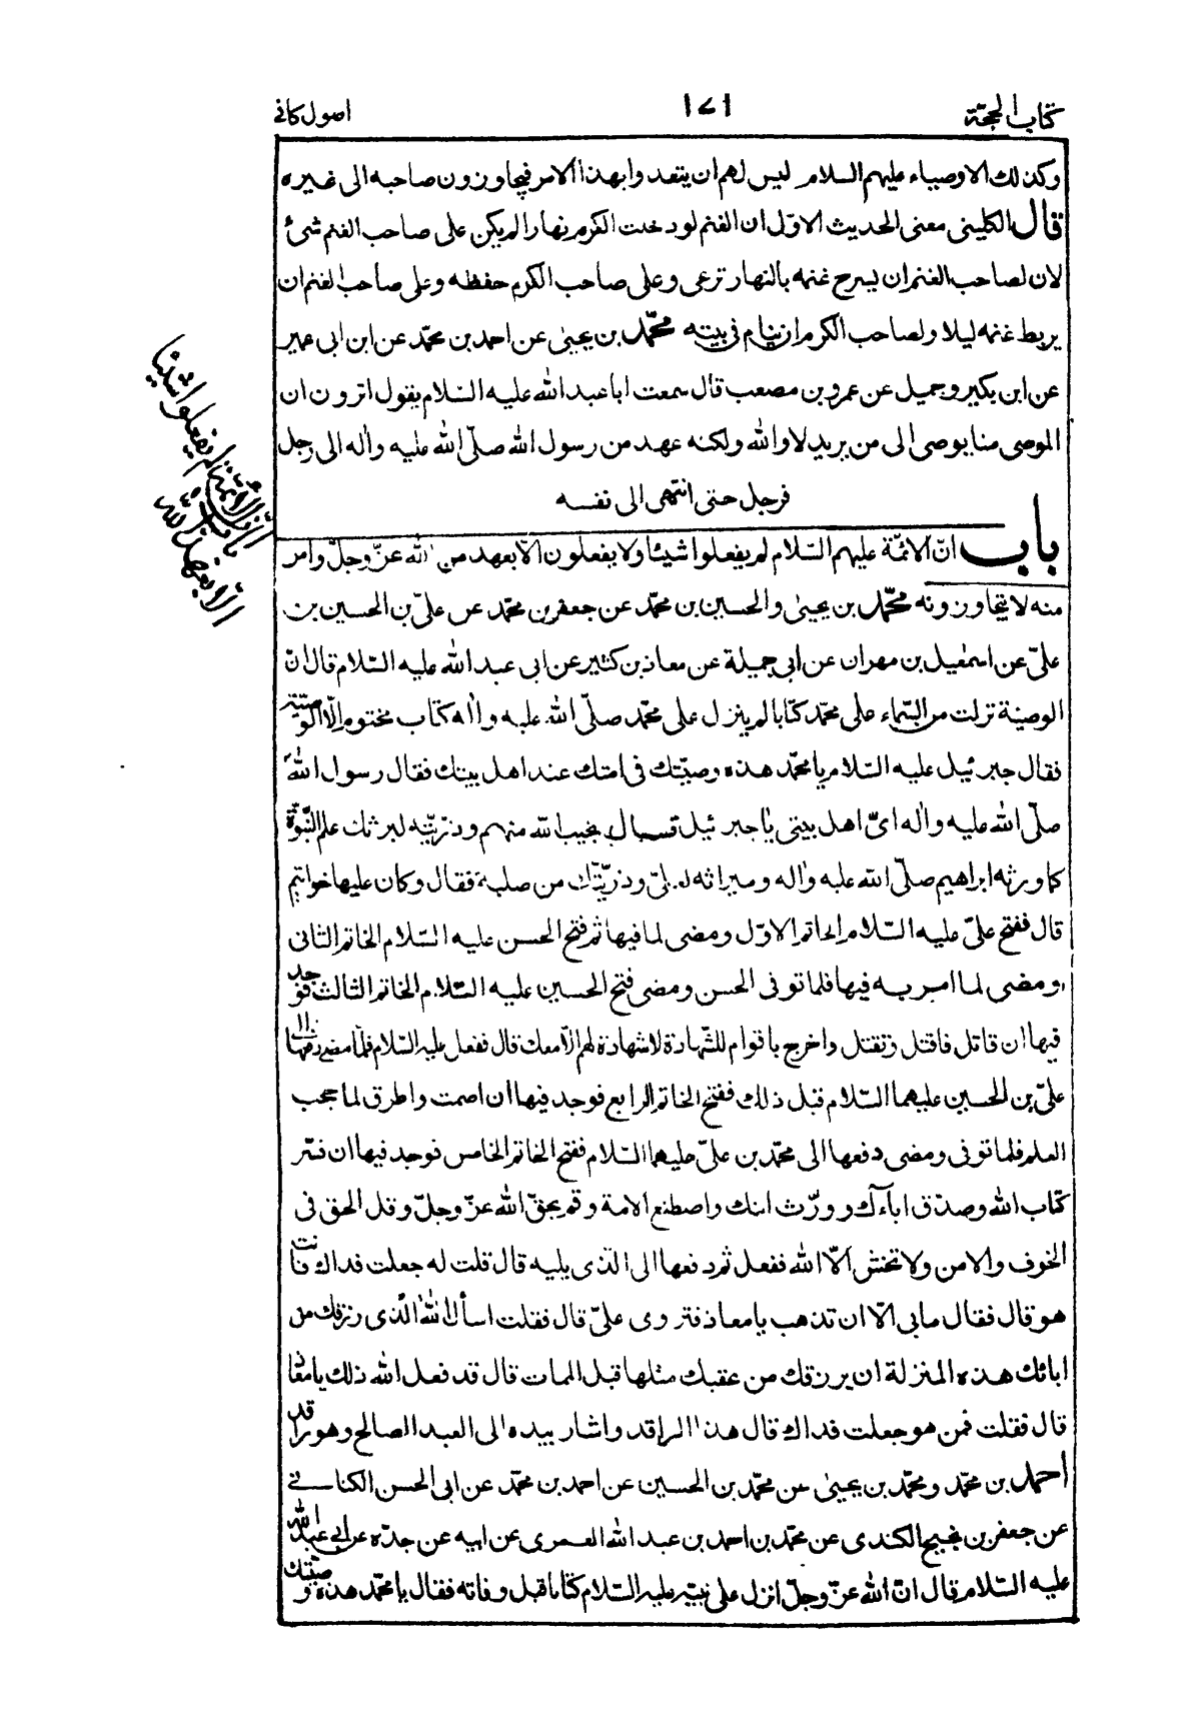 كتاب الحجة
١٧١
اصول كافى
وكذلك الاوصياء عليهم السلام ليس لهم ان يتعدوا بهذا الامر فيجاوزون صاحبه الى غيره
قال الكلينى معنى الحديث الاوّل ان الغنم لو دخلت الكرم نهارا لم يكن على صاحب الغنم شئ
لان لصاحب الغنم ان يسرح غنمه بالنهار ترعى وعلى صاحب الكرم حفظه وعلى صاحب الغنم ان
يربط غنمه ليلا ولصاحب الكرم ان ينام فى بيته محمّد بن يحيى عن احمد بن محمّد عن ابن ابى عمير
عن ابن بكير وجميل عن عمرو بن مصعب قال سمعت ابا عبد الله عليه السّلام يقول اترون ان
الموصى منا يوصى الى من يريد لا والله ولكنه عهد من رسول الله صلّى الله عليه واٰله الى رجل
فرجل حتى انتهى الى نفسه
باب انّ الائمّة عليهم السّلام لم يفعلوا شيئا ولا يفعلون الّا بعهد من الله عزّ وجلّ وامر
منه لا يتجاوزونه محمّد بن يحيىٰ والحسين بن محمّد عن جعفر بن محمّد عن علىّ بن الحسين بن
علىّ عن اسمٰعيل بن مهران عن ابى جميلة عن معاذ بن كثير عن ابى عبد الله عليه السّلام قال انّ
الوصيّة نزلت من السّماء على محمّد كتابا لم ينزل على محمّد صلّى الله عليه واٰله كتاب مختوم الّا الوصيّة
فقال جبرئيل عليه السّلام يا محمّد هذه وصيّتك فى امتك عند اهل بيتك فقال رسول الله
صلّى الله عليه واٰله اىّ اهل بيتى يا جبرئيل قال نجيب الله منهم وذرّيّته ليرثك علم النّبوّة
كما ورثه ابراهيم صلّى الله عليه واٰله وميراثه لعلىّ وذرّيّتك من صلبه فقال وكان عليها خواتيم
قال ففتح علىّ عليه السّلام الخاتم الاوّل ومضى لما فيها ثم فتح الحسن عليه السّلام الخاتم الثانى
ومضى لما امر به فيها فلما توفى الحسن ومضى فتح الحسين عليه السّلام الخاتم الثالث فوجد
فيها ان قاتل فاقتل وتقتل واخرج باقوام للشّهادة لا شهادة لهم الّا معك قال ففعل عليه السّلام فلمّا مضى دفعها الى
علىّ بن الحسين عليهما السّلام قبل ذلك ففتح الخاتم الرابع فوجد فيها ان اصمت واطرق لما حجب
العلم فلما توفى ومضى دفعها الى محمّد بن علىّ عليهما السّلام ففتح الخاتم الخامس فوجد فيها ان فسّر
كتاب الله وصدّق اباءك وورّث ابنك واصطنع الامة وقم بحقّ الله عزّ وجلّ وقل الحق فى
الخوف والامن ولا تخش الّا الله ففعل ثم دفعها الى الّذى يليه قال قلت له جعلت فداك فانت
هو قال فقال ما بى الّا ان تذهب يا معاذ فتروى علىّ قال فقلت اسأل الله الّذى رزقك من
ابائك هذه المنزلة ان يرزقك من عقبك مثلها قبل الممات قال قد فعل الله ذلك يا معاذ
قال فقلت فمن هو جعلت فداك قال هذا الراقد واشار بيده الى العبد الصالح وهو راقد
احمد بن محمّد ومحمّد بن يحيىٰ عن محمّد بن الحسين عن احمد بن محمّد عن ابى الحسن الكنانى
عن جعفر بن نجيح الكندى عن محمّد بن احمد بن عبد الله العمرى عن ابيه عن جدّه عن ابى عبد الله
عليه السّلام قال انّ الله عزّ وجلّ انزل على نبيّه عليه السّلام كتابا قبل وفاته فقال يا محمّد هذه وصيّتك
باب
انّ الائمّة لم يفعلوا شيئا
الّا بعهد الله